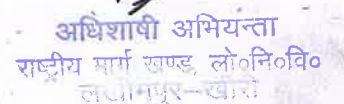 अधिशाषी अभियन्ता
राष्ट्रीय मार्ग खण्ड, लो०नि०वि०
लखीमपुर-खीरी